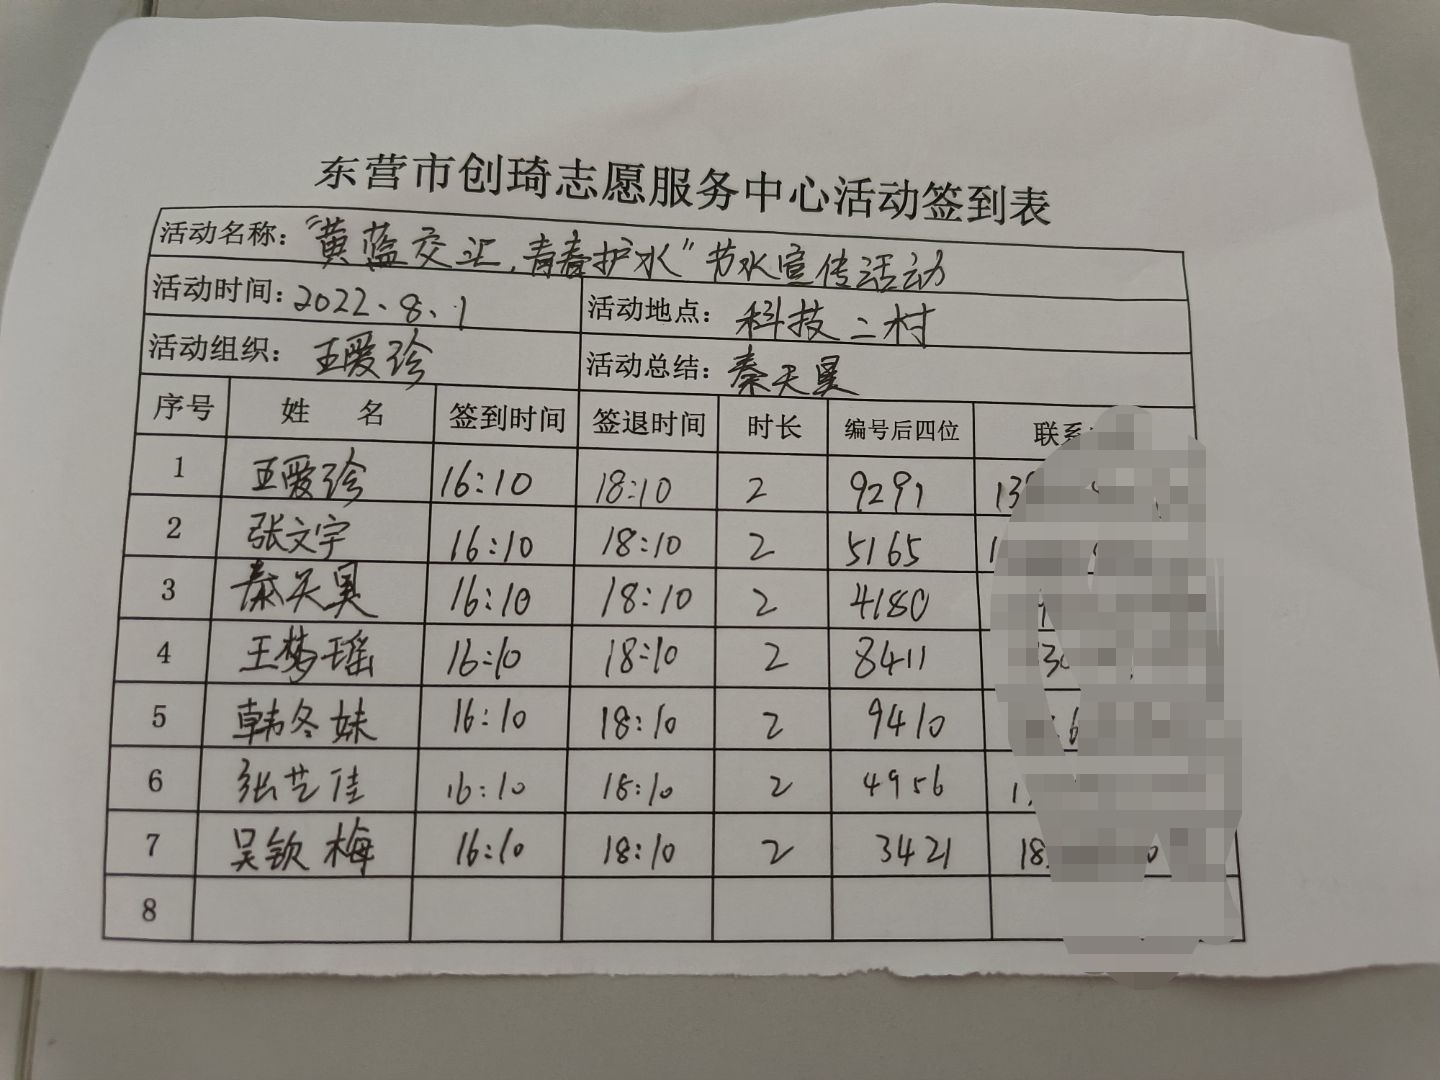 东营市创琦志愿服务中心活动签到表
活动名称：“黄蓝交汇，青春护水”节水宣传活动
活动时间：2022、8、1 活动地点：科技二村
活动组织：王爱珍 活动总结：秦天昊
序号 姓 名 签到时间 签退时间 时长 编号后四位 联系
1 王爱珍 16:10 18:10 2 9291
2 张文宇 16:10 18:10 2 5165
3 秦天昊 16:10 18:10 2 4180
4 王梦瑶 16:10 18:10 2 8411
5 韩冬妹 16:10 18:10 2 9410
6 张艺佳 16:10 18:10 2 4956
7 吴钦梅 16:10 18:10 2 3421
8